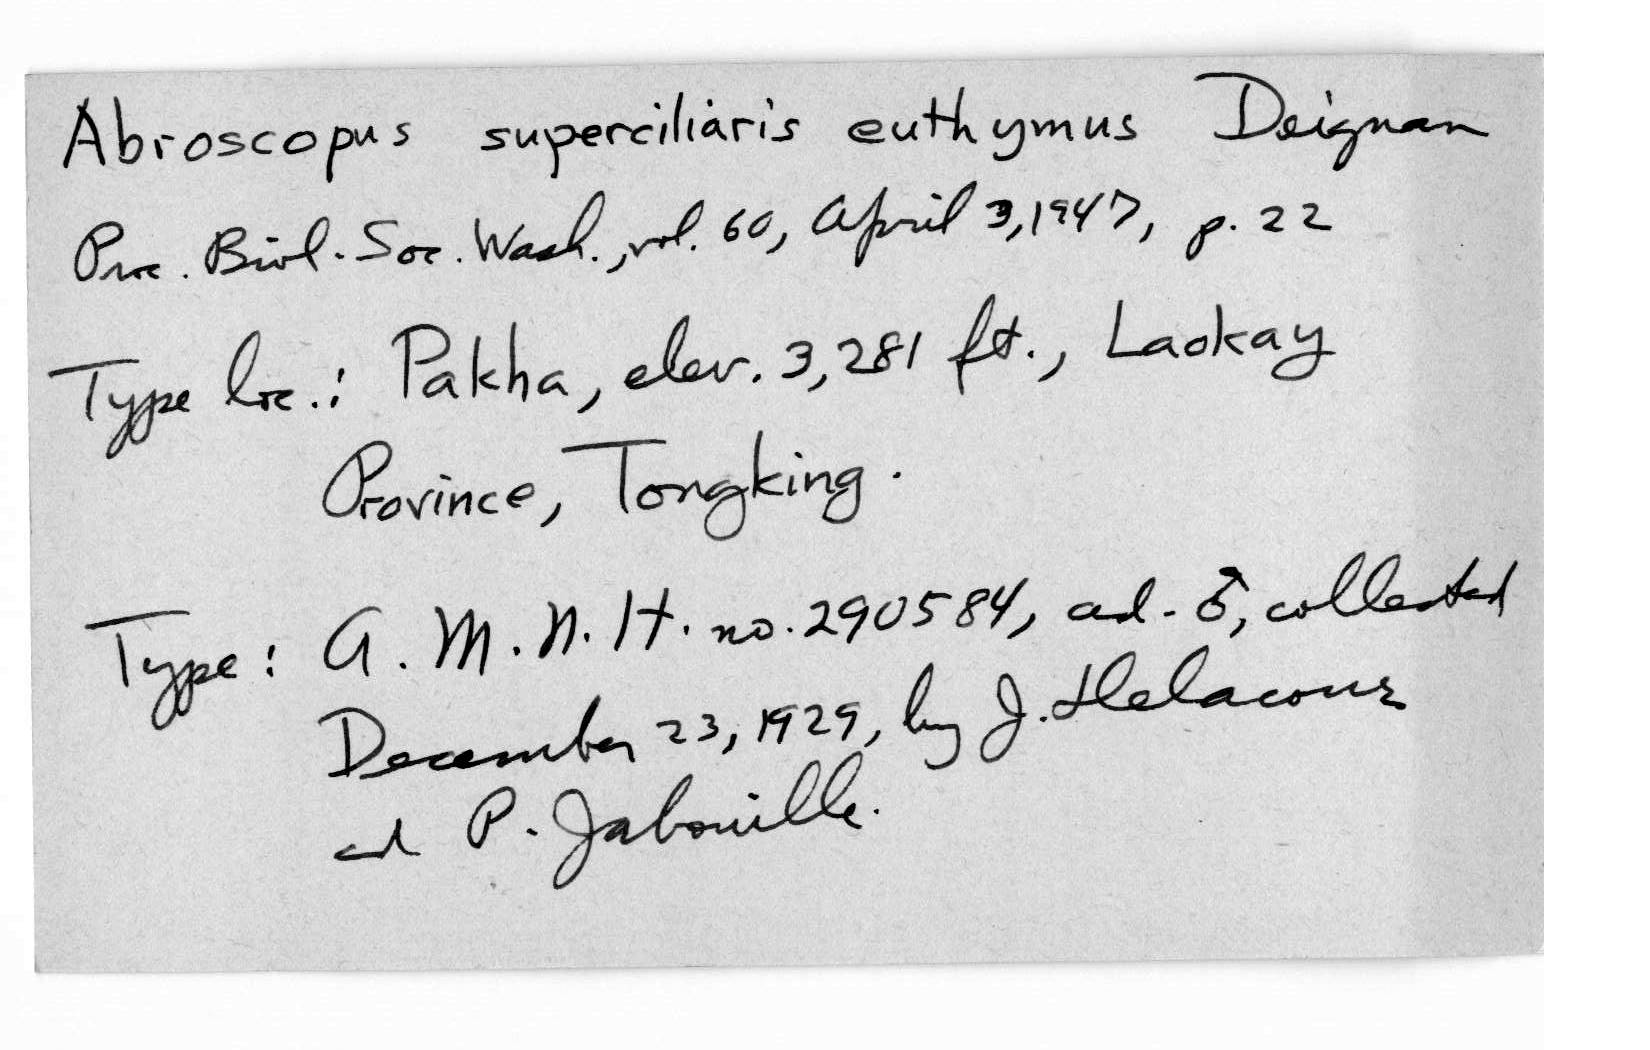 Abroscopus superciliaris euthymus Deignan
Proc. Biol. Soc. Wash., vol. 60, April 3, 1947, p. 22
Type loc.: Pakha, elev. 3,281 ft., Laokay
Province, Tongking.
Type: A. M. N. H. no. 290584, ad. ♂, collected
December 23, 1929, by J. Delacour
and P. Jabouille.